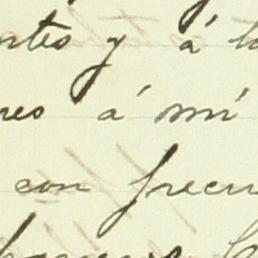 ntes y á la
res á mi
con frecu